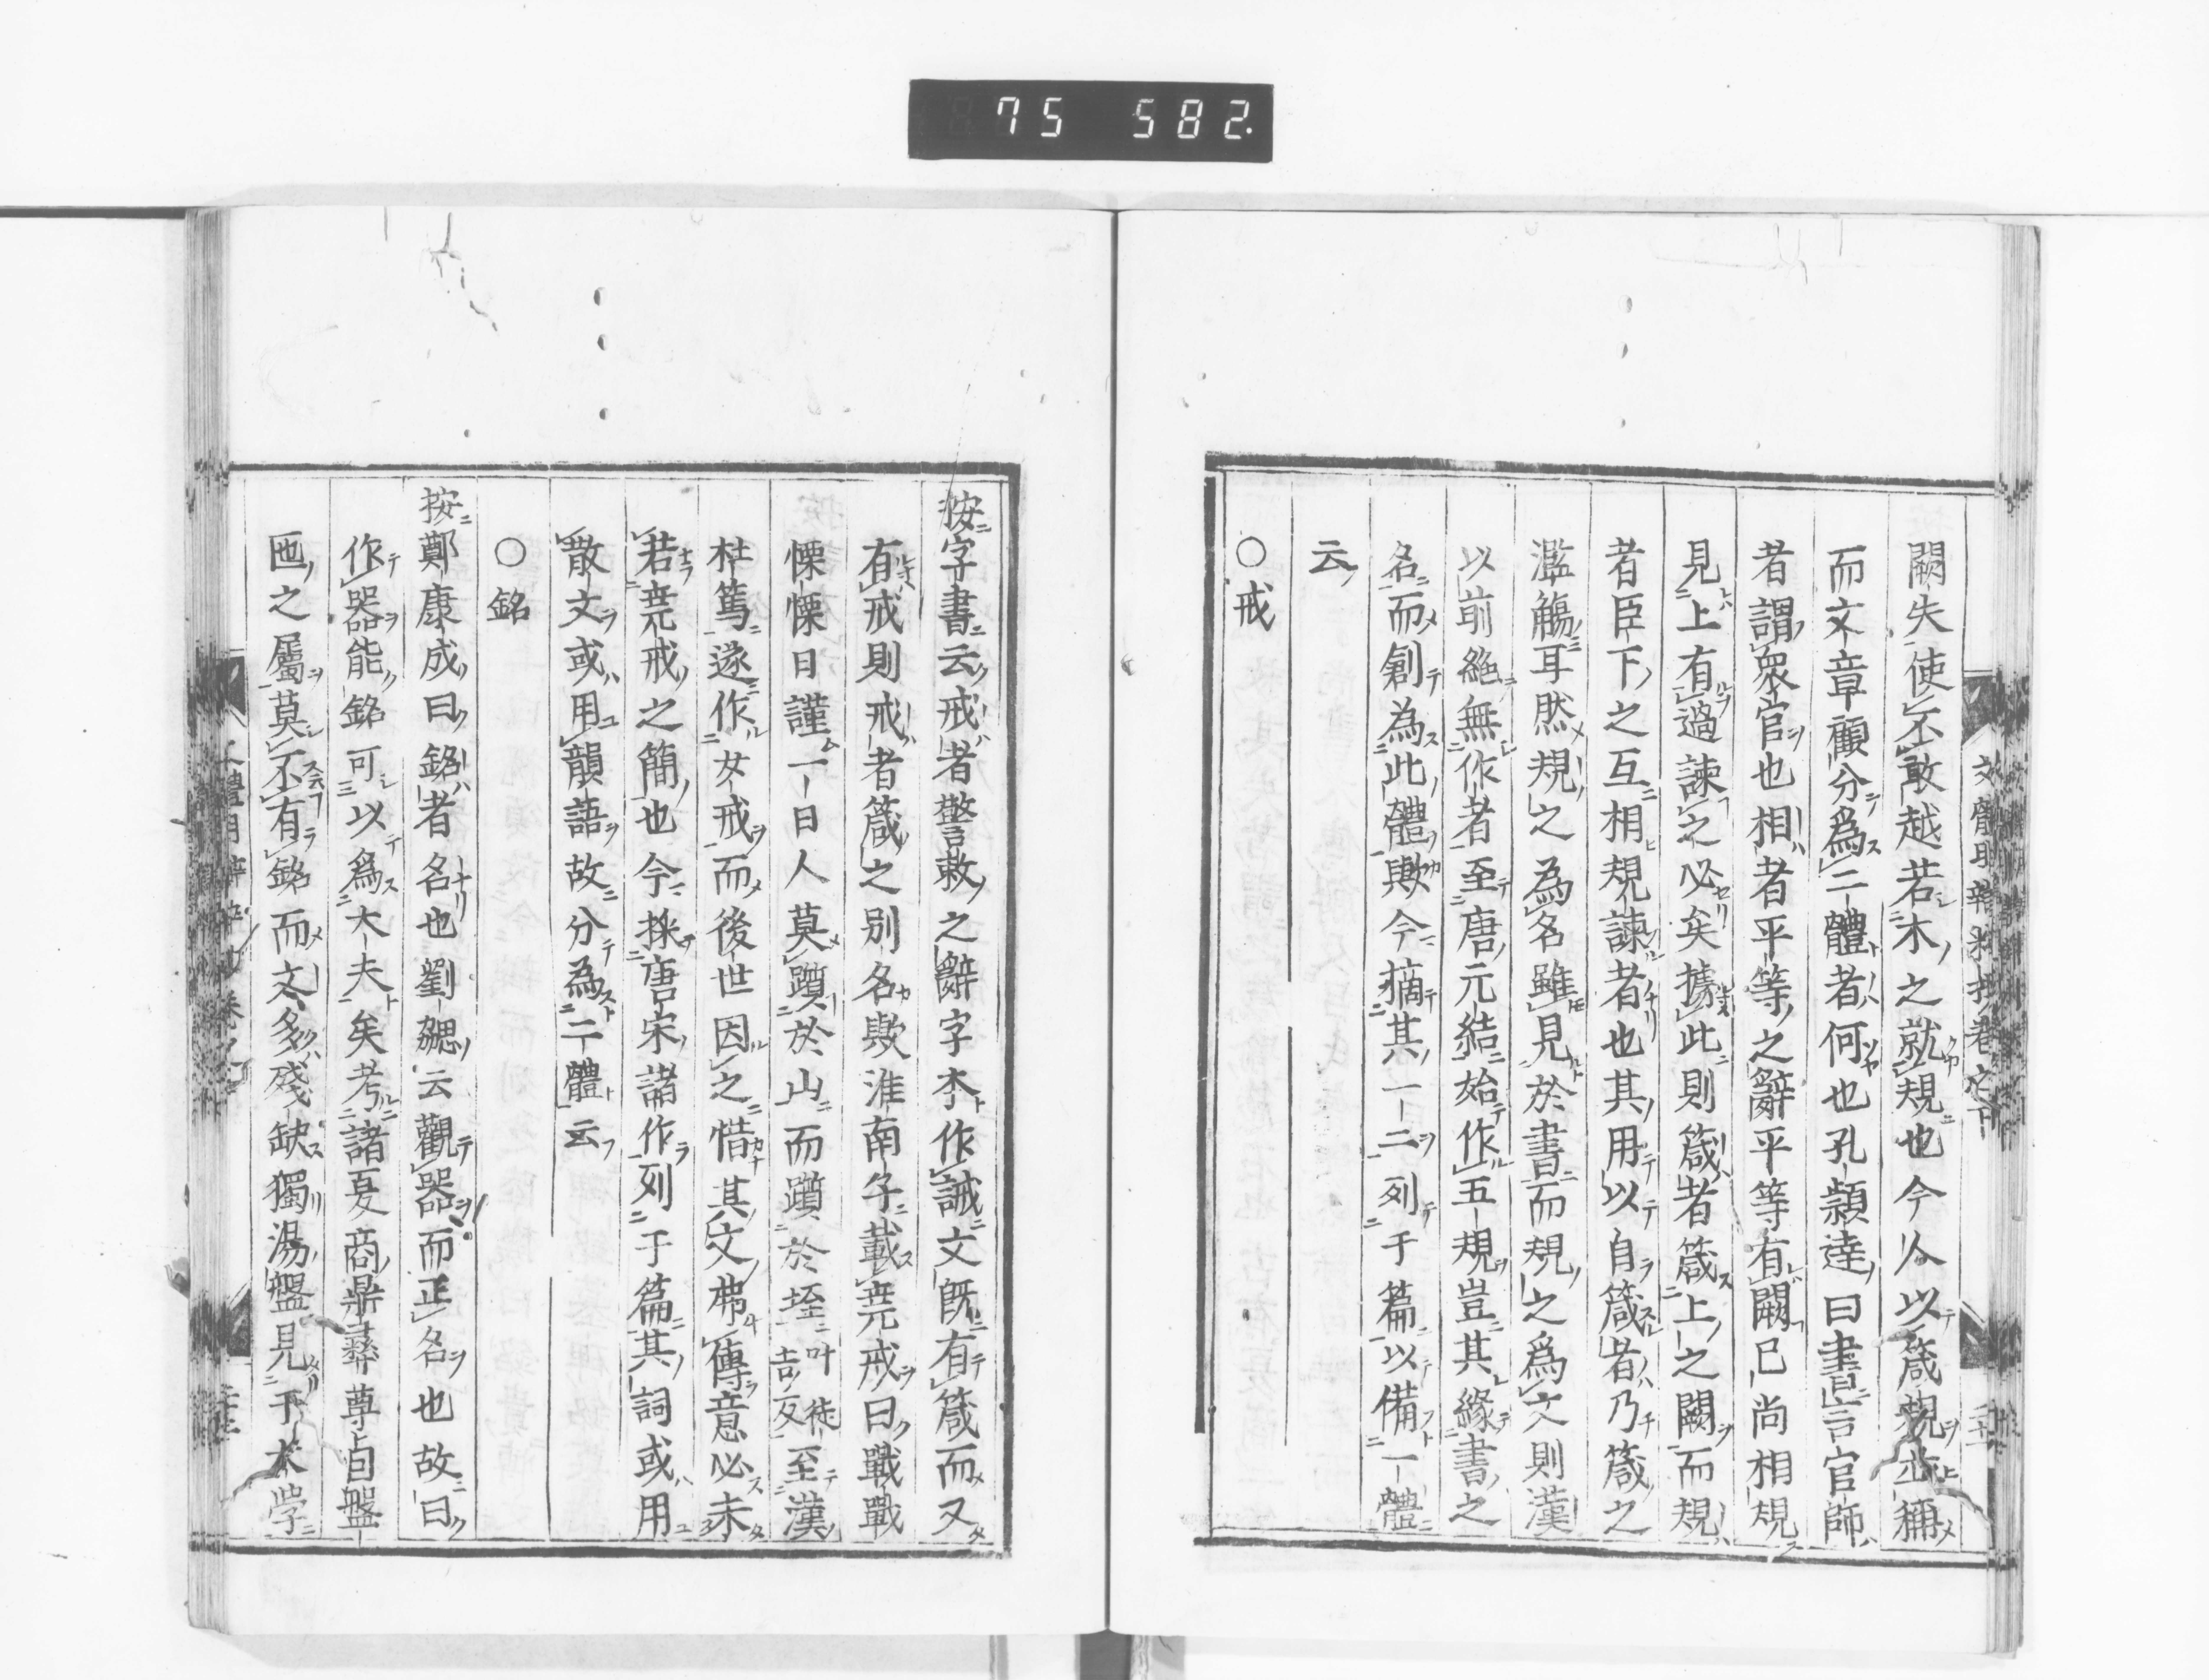 75 582.
闕失使不敢越若木之就規也今人以箴規並稱
而文章顧分爲二體者何也孔穎達曰書言官師
者謂衆官也相者平等之辭平等有闕已尚相規
見上有過諫之必矣據此則箴者箴上之闕而規
者臣下之互相規諫者也其用以自箴者乃箴之
濫觴耳然規之為名雖見於書而規之爲文則漢
以前絶無作者至唐元結始作五規豈其緣書之
名而創為此體歟今摘其一二列于篇以備一體
云
○戒
按字書云戒者警敕之辭字本作誡文既有箴而又
有戒則戒者箴之别名歟淮南子載尭戒曰戰戰
慄慄日謹一日人莫躓於山而躓於垤叶徒吉反至漢
杜篤遂作女戒而後世因之惜其文弗傳意必未
若尭戒之簡也今採唐宋諸作列于篇其詞或用
散文或用韻語故分為二體云
○銘
按鄭康成曰銘者名也劉勰云觀器而正名也故曰
作器能銘可以爲大夫矣考諸夏商鼎彝尊卣盤
匜之屬莫不有銘而文多殘缺獨湯盤見于大学